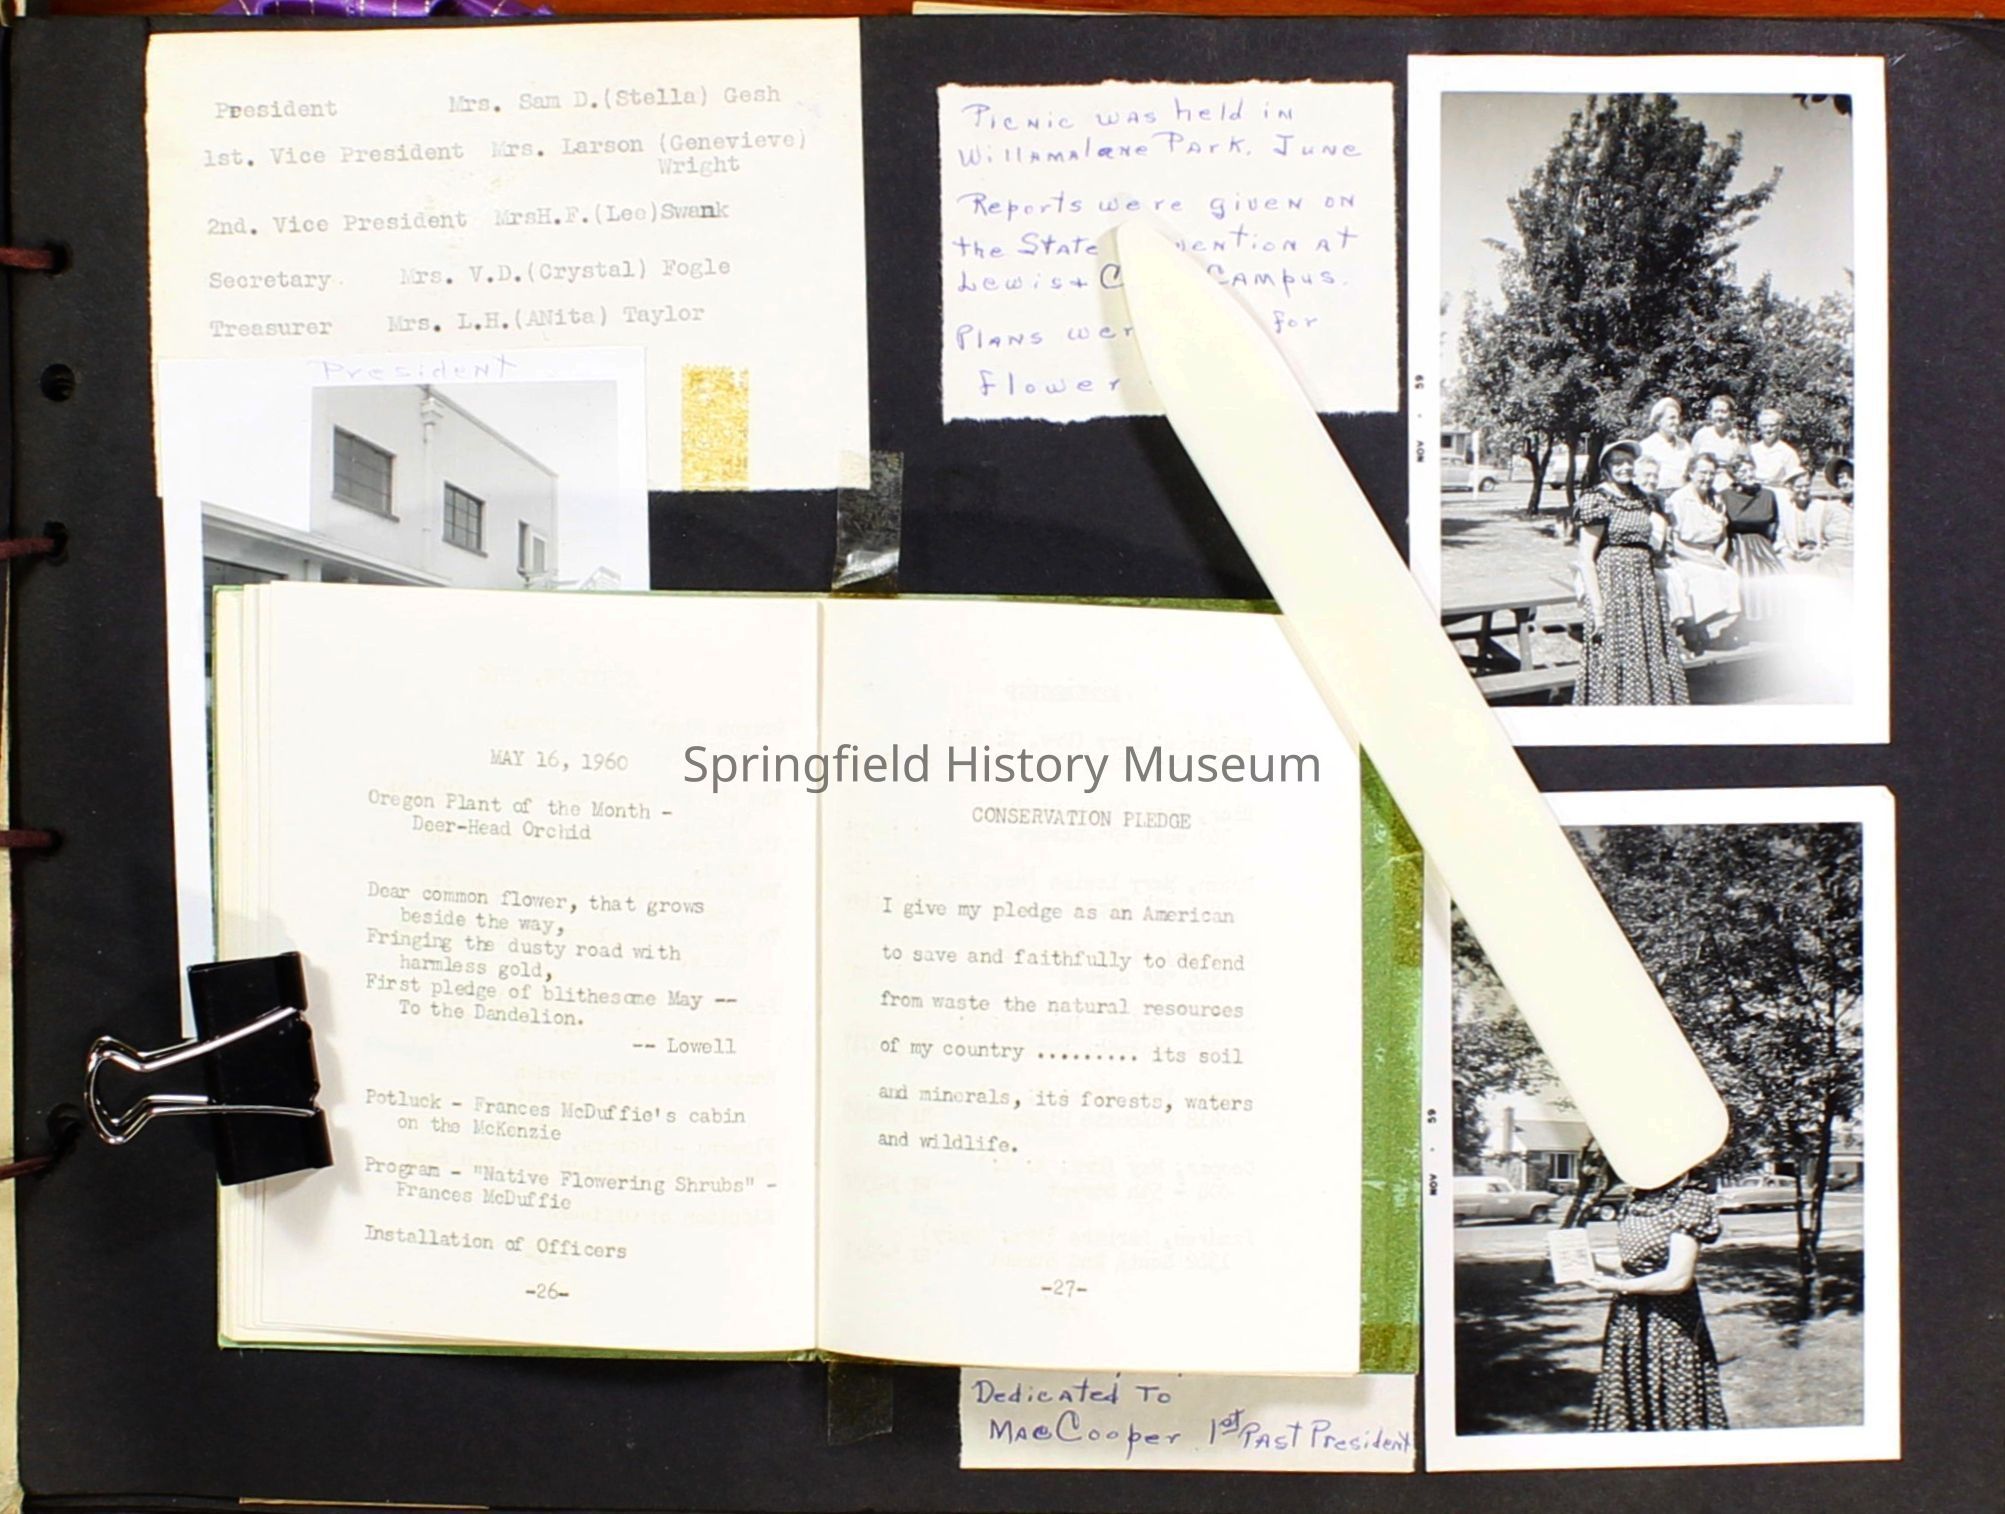 President Mrs. Sam D.(Stella) Gesh
1st. Vice President Mrs. Larson (Genevieve)
Wright
2nd. Vice President MrsH.F.(Lee)Swank
Secretary. Mrs. V.D.(Crystal) Fogle
Treasurer Mrs. L.H.(ANita) Taylor
President
Picnic was held in
Willamalane Park. June
Reports were given on
the State
at
Lewis &
Campus.
Plans
for
flower
NOV • 59
MAY 16, 1960
Oregon Plant of the Month -
Deer-Head Orchid
Dear common flower, that grows
beside the way,
Fringing the dusty road with
harmless gold,
First pledge of blithesome May --
To the Dandelion.
-- Lowell
Potluck - Frances McDuffie's cabin
on the McKenzie
Program - "Native Flowering Shrubs" -
Frances McDuffie
Installation of Officers
-26-
CONSERVATION PLEDGE
I give my pledge as an American
to save and faithfully to defend
from waste the natural resources
of my country ......... its soil
and minerals, its forests, waters
and wildlife.
-27-
Springfield History Museum
NOV • 59
Dedicated To
Mae Cooper 1st Past President